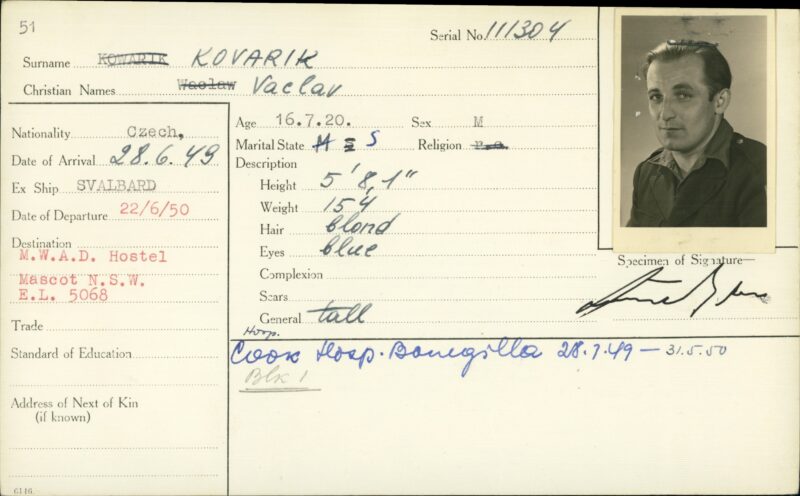 51
Serial No. 111304
Surname KOWARIK KOVARIK
Christian Names Waclaw Vaclav
Nationality Czech,
Date of Arrival 28.6.49
Ex Ship SVALBARD
Date of Departure 22/6/50
Destination
M.W.A.D. Hostel
Mascot N.S.W.
E.L. 5068
Trade
Standard of Education
Address of Next of Kin
(if known)
6146
Age 16.7.20. Sex M
Marital State M = S Religion
Description
Height 5' 8, 1"
Weight 154
Hair blond
Eyes blue
Complexion
Scars
General tall
Specimen of Signature—
Hosp.
Cook Hosp. Bonegilla 28.7.49 — 31.5.50
Blk 1